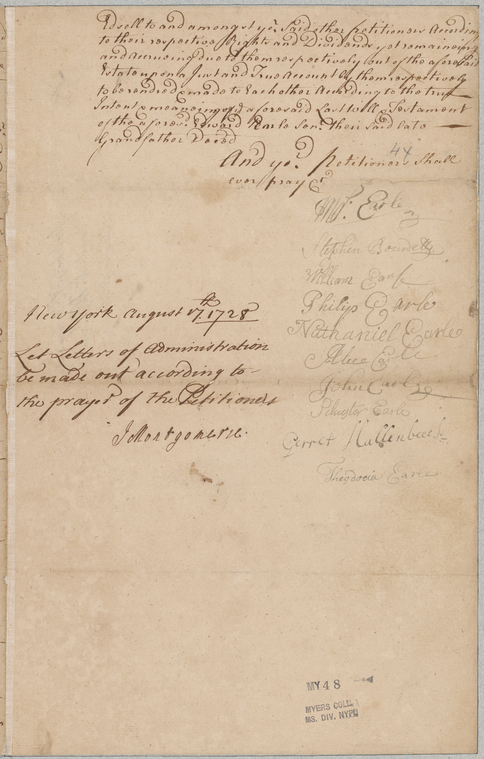 Edsell to and amongst yor. Said other petitioners According
to their respective Rights and Dividends yet remaining
and Accrueing due to them respectively out of the aforesaid
Estate upon a Just and True Account by them respectively
to be rendred & made to Each other According to the true
Intent & meaning of ye aforesaid Last Will & Testament
of the afores.d Edward Earle Senr. their said late
Grandfather Deced
And yor. Petitioners Shall
ever pray &c
44
Earle
Stephen Bourdett
William Earle
Philip Earle
Nathaniel Earle
Earle
John Earle
Silvester Earle
Gerret Hallenbeeck
Theodocia Earle
New York August 17th 1728
Let Letters of Administration
be made out according to
the prayer of the Petitioners
J Montgomerie.
MY 48
MYERS COLL.
MS. DIV. NYPL